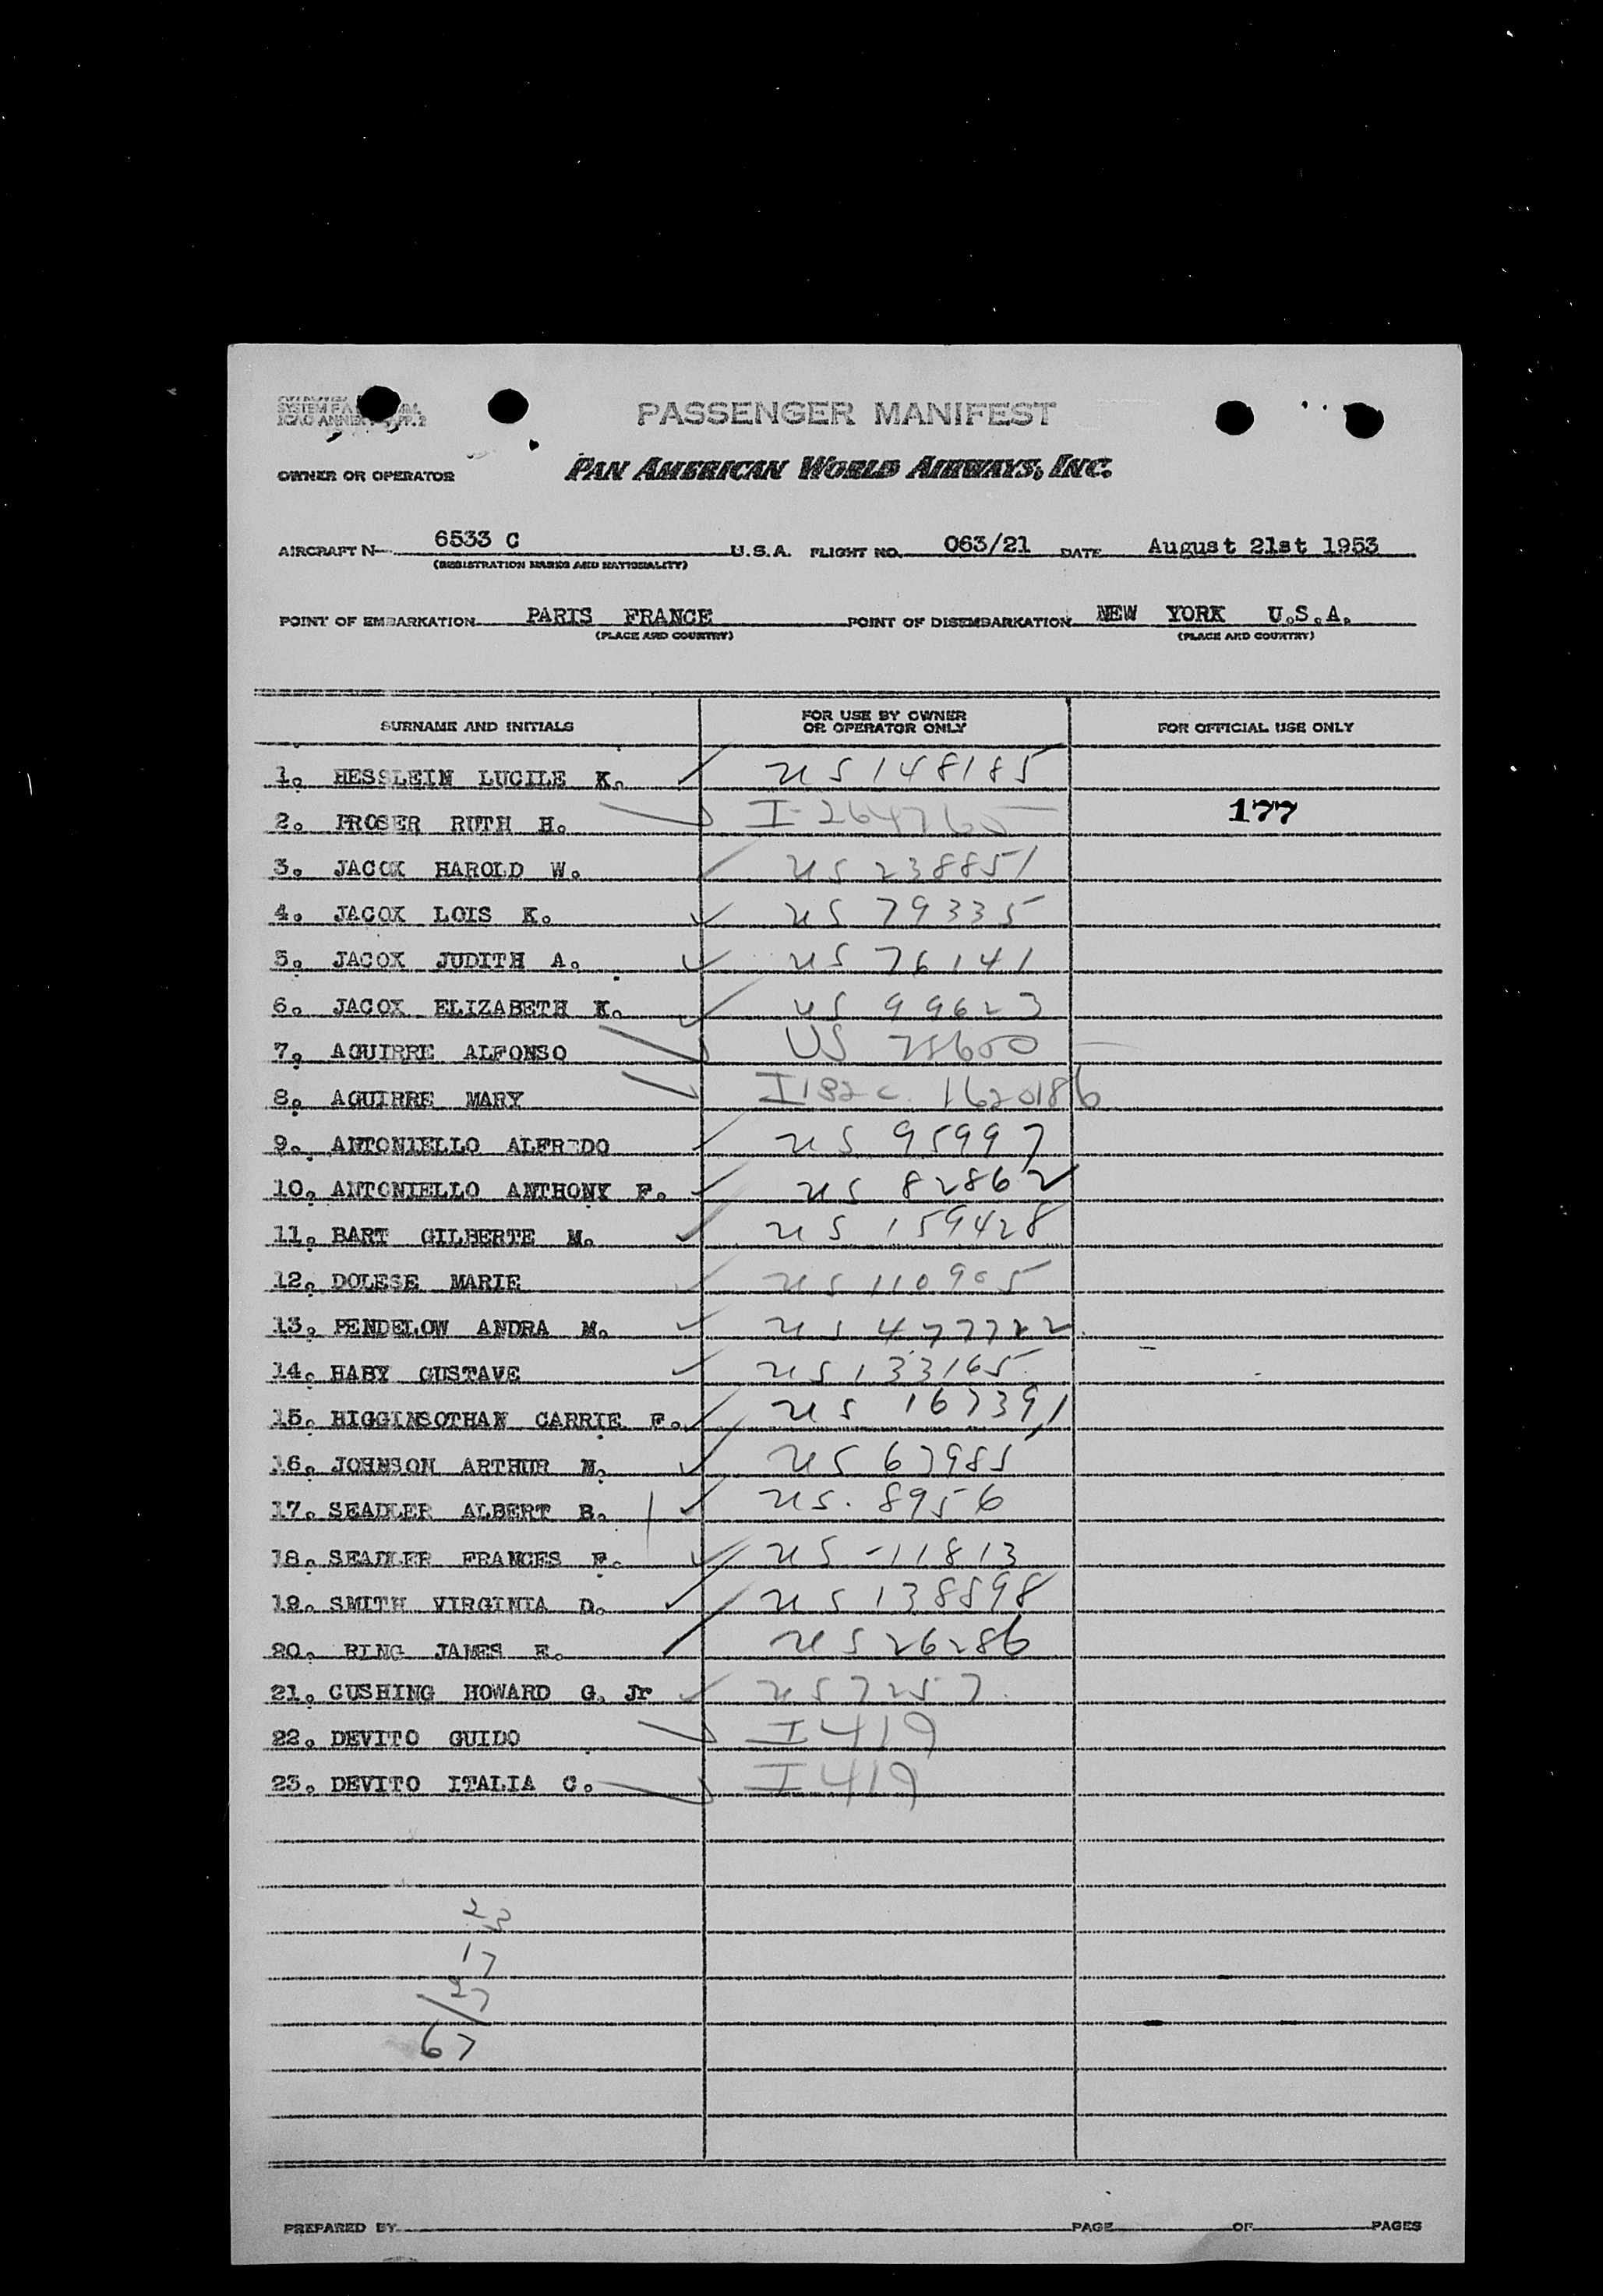 PASSENGER MANIFEST
OWNER OR OPERATOR PAN AMERICAN WORLD AIRWAYS, INC.
AIRCRAFT N 6533 C U.S.A. FLIGHT NO. 063/21 DATE August 21st 1953
(REGISTRATION MARKS AND NATIONALITY)
POINT OF EMBARKATION PARIS FRANCE POINT OF DISEMBARKATION NEW YORK U.S.A.
(PLACE AND COUNTRY) (PLACE AND COUNTRY)
SURNAME AND INITIALS FOR USE BY OWNER OR OPERATOR ONLY FOR OFFICIAL USE ONLY
1. HESSLEIN LUCILE K. US 148185
2. PROSER RUTH H. I-264760 177
3. JACOX HAROLD W. US 238851
4. JACOX LOIS K. US 79335
5. JACOX JUDITH A. US 76141
6. JACOX ELIZABETH K. US 99623
7. AGUIRRE ALFONSO US
8. AGUIRRE MARY I182c. 1620186
9. ANTONIELLO ALFREDO US 95997
10. ANTONIELLO ANTHONY F. US 82862
11. BART GILBERTE M. US 159428
12. DOLESE MARIE US 110905
13. PENDELOW ANDRA M. US 477722
14. HABY GUSTAVE US 133165
15. HIGGINSOTHAN CARRIE F. US 167391
16. JOHNSON ARTHUR N. US 67985
17. SEADLER ALBERT B. US. 8956
18. SEADLER FRANCES F. US -11813
19. SMITH VIRGINIA D. US 138898
20. RING JAMES E. US 26286
21. CUSHING HOWARD G. Jr US 7257
22. DEVITO GUIDO I 419
23. DEVITO ITALIA C. I 419
23
17
27
67
PREPARED BY PAGE OF PAGES